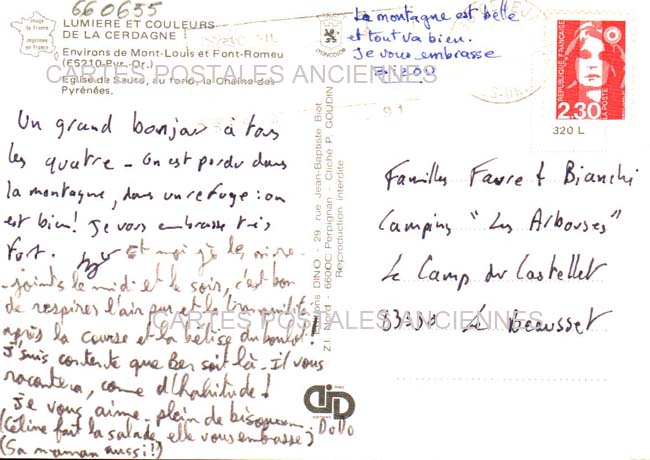 660655
LUMIERE ET COULEURS
DE LA CERDAGNE
Environs de Mont-Louis et Font-Romeu
(66210-Pyr.-Or.)
Eglise de Sauto, au fond, la Chaîne des
Pyrénées.
image de France
imprimée en France
CARTES POSTALES ANCIENNES
La montagne est belle
et tout va bien.
Je vous embrasse
REPUBLIQUE FRANÇAISE
LA POSTE
2,30
320 L
91
Un grand bonjour à tous
les quatre - On est perdu dans
la montagne, dans un refuge : on
est bien ! Je vous embrasse très
fort.
Et moi j'les re-
joints le midi et le soir, c'est bon
de respirer l'air pur et la tranquilité
après la course et la bêtise du boulot !
J'suis contente que Ben soit là - Il vous
racontera, comme d'habitude !
Je vous aime - plein de bisous DoDo
(Céline fait la salade, elle vous embrasse)
(Sa maman aussi !!)
Editions DINO - 29, rue Jean-Baptiste Biot
Z.I. Nord - 66000 Perpignan - Cliché P. GOUDIN
Reproduction interdite
Familles Favre & Bianchi
Camping "Les Arbouses"
Le Camp du Castellet
83330 Le Beausset
CARTES POSTALES ANCIENNES